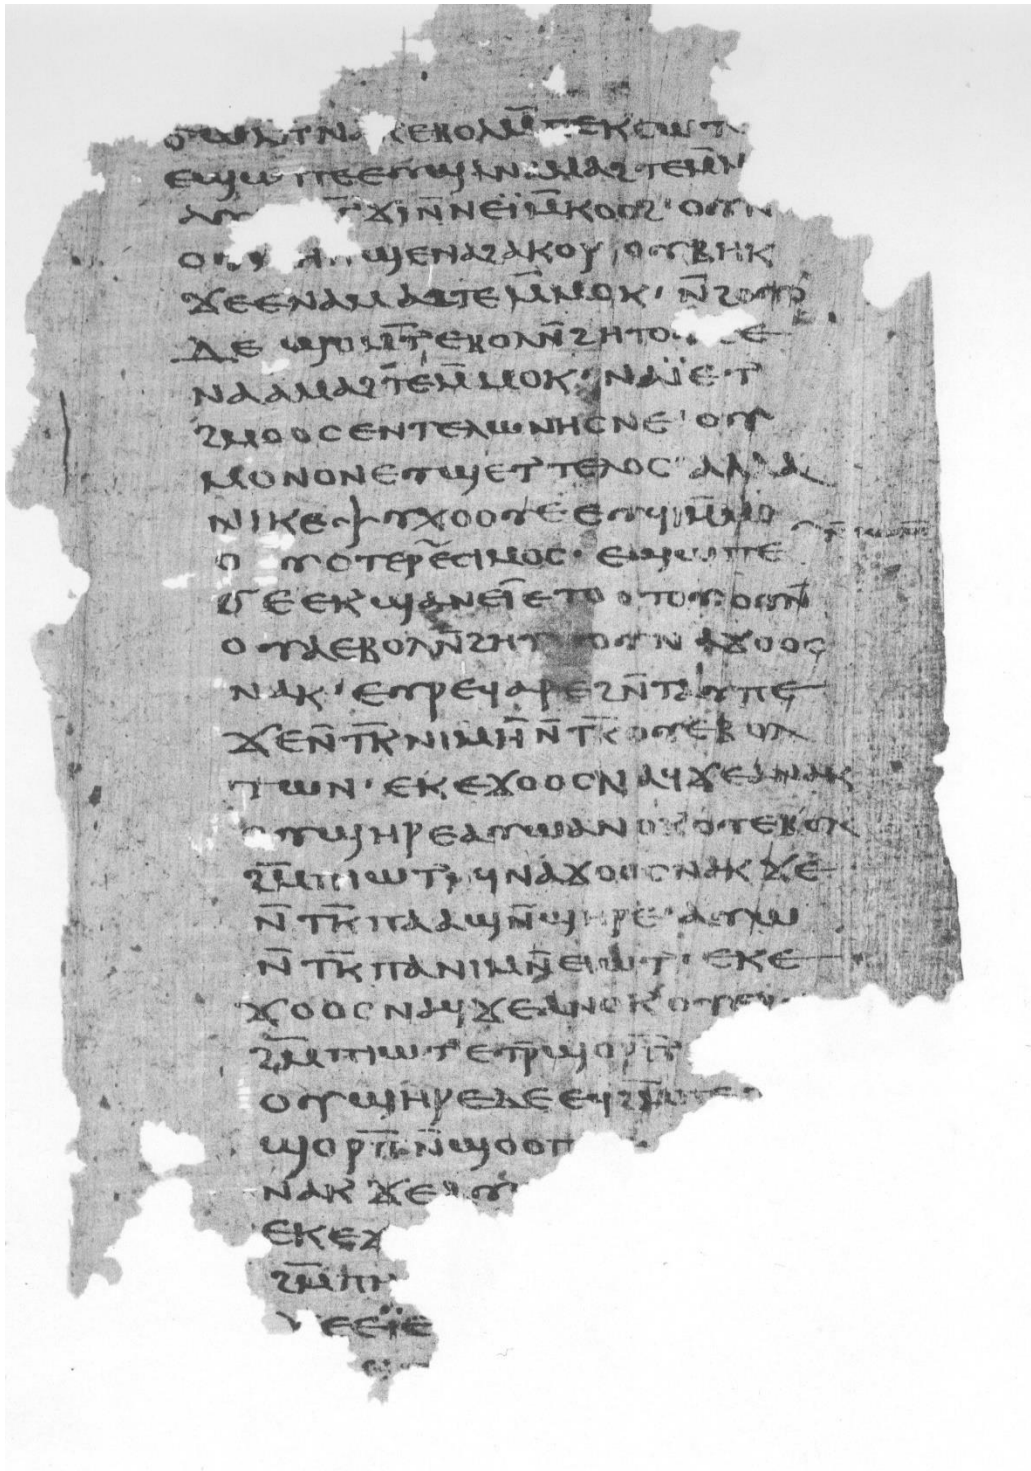 ⲟⲩⲱⲛϩ ⲛⲁ ⲉⲃⲟⲗ ⲙ̄ⲡⲉⲕⲥⲱⲧ
ⲉϣⲱⲡⲉ ⲉⲩϣⲁⲛⲁⲙⲁϩⲧⲉ ⲙ̄ⲙ
ⲁⲩ ϫⲓ ⲛ̄ⲛⲉⲓ̈ⲙ̄ⲕⲟⲟϩ· ⲟⲩⲛ
ϣⲉ ⲛⲁϩⲁⲕⲟⲩ ⲟⲩⲃⲏⲕ
ϫⲉ ⲉⲛⲁⲙⲁϩⲧⲉ ⲙ̄ⲙⲟⲕ· ⲛ̄ϩⲟⲩⲟ
ⲇⲉ ϣⲟⲙⲛ̄ⲧ ⲉⲃⲟⲗ ⲛ̄ϩⲏⲧⲟⲩ ⲥⲉ
ⲛⲁⲁⲙⲁϩⲧⲉ ⲙ̄ⲙⲟⲕ· ⲛⲁⲓ̈ ⲉⲧ
ϩⲙⲟⲟⲥ ⲉⲛⲧⲉⲗⲱⲛⲏⲥ ⲛⲉ· ⲟⲩ
ⲙⲟⲛⲟⲛ ⲉⲩϣⲉⲧ ⲧⲉⲗⲟⲥ· ⲁⲗⲗⲁ
ⲛⲓⲕⲉⲯⲩⲭⲟⲟⲩⲉ ⲉⲩϥⲓ ⲙ̄ⲙⲟ
ⲟⲩ ⲟⲧⲉⲣⲉⲥⲓⲙⲟⲥ· ⲉϣⲱⲡⲉ
ϭⲉ ⲉⲕϣⲁⲛⲉⲓ̄ ⲉⲧⲟⲟⲧⲟⲩ ⲟⲩⲛ̄
ⲟⲩⲁ ⲉⲃⲟⲗ ⲛ̄ϩⲏⲧⲟⲩ ⲛⲁϫⲟⲟⲥ
ⲛⲁⲕ· ⲉⲩⲣⲉϥⲁⲣⲉϩ ⲛ̄ⲧⲁⲩ ⲡⲉ
ϫⲉ ⲛ̄ⲧⲕ̄ ⲛⲓⲙ ⲏ̄ ⲛ̄ⲧⲕ̄ ⲟⲩⲉⲃⲟⲗ
ⲧⲱⲛ· ⲉⲕⲉϫⲟⲟⲥ ⲛⲁϥ ϫⲉ ⲁⲛⲟⲕ
ⲟⲩϣⲏⲣⲉ ⲁⲩⲱ ⲁⲛⲟⲕ ⲟⲩⲉⲃⲟⲗ
ϩⲙ̄ ⲡⲓⲱⲧ· ϥⲛⲁϫⲟⲟⲥ ⲛⲁⲕ ϫⲉ
ⲛ̄ⲧⲕ̄ ⲡⲁⲁϣ ⲛ̄ϣⲏⲣⲉ· ⲁⲩⲱ
ⲛ̄ⲧⲕ̄ ⲡⲁⲛⲓⲙ ⲛ̄ⲉⲓⲱⲧ· ⲉⲕⲉ
ϫⲟⲟⲥ ⲛⲁϥ ϫⲉ ⲁⲛⲟⲕ ⲟⲩⲉⲃ
ϩⲙ̄ ⲡⲓⲱⲧ ⲉⲧⲣ̄ϣⲟⲣⲡ̄
ⲟⲩϣⲏⲣⲉ ⲇⲉ ⲉϥϩⲙ̄ ⲡⲉⲧ
ϣⲟⲣⲡ̄ ⲛ̄ϣⲟⲟⲡ
ⲛⲁⲕ ϫⲉ
ⲉⲕⲉϫ
ϩⲙ̄ ⲡ